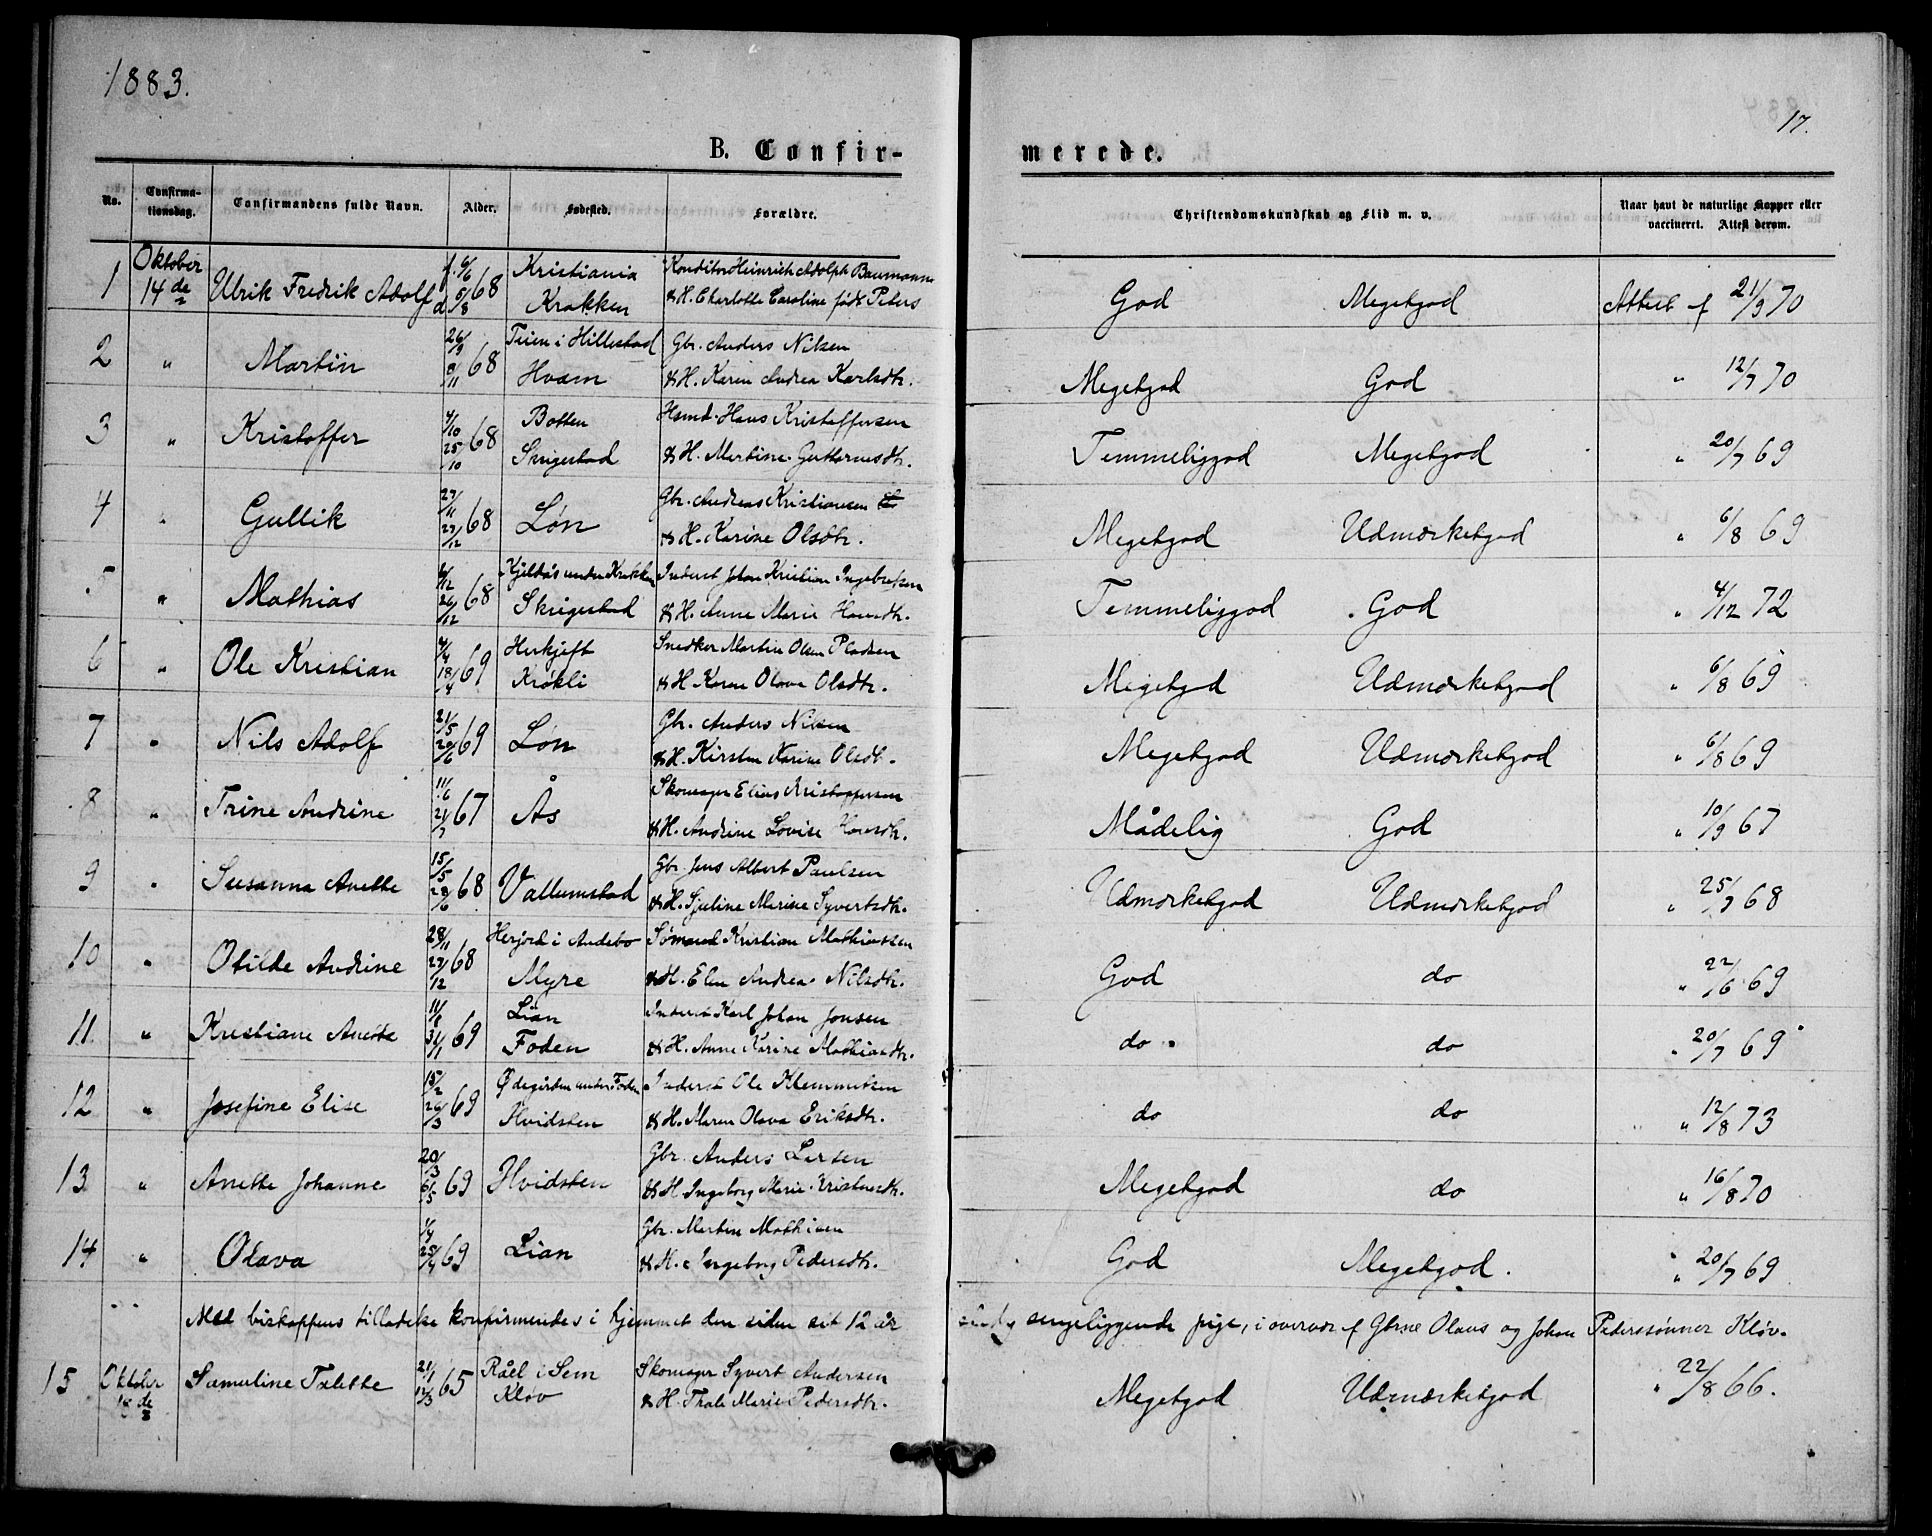 1883.
17.
B. Confir-
merede.
No.
Confirma-
tionsdag.
Confirmandens fulde Navn.
Alder.
Fødested.
Forældre.
Christendomskundskab og Flid m. v.
Naar havt de naturlige Kopper eller
vaccineret. Attest derom.
1 Oktober 14de Ulrik Fredrik Adolf f. 6/6 68 Kristiania Konditor Heinrich Adolph Baumann
Krakken & H. Charlotte Caroline født Peters
God Megetgod Attest f 21/9 70
2 " Martin 26/9 68 Teien i Hillestad Gbr. Anders Nilsen
8/11 Hvam & H. Karen Andrea Karlsdtr.
Megetgod God " 12/7 70
3 " Kristoffer 4/10 68 Botten Hsmd. Hans Kristoffersen
25/10 Skrigestad & H. Martine Guttormsdtr.
Temmeliggod Megetgod " 20/7 69
4 " Gullik 27/11 68 Løn Gbr. Andreas Kristiansen
27/12 & H. Karine Olsdtr.
Megetgod Udmærketgod " 6/8 69
5 " Mathias 4/12 68 Kjeldås under Krakken Inderst Johan Kristian Ingebretsen
26/12 Skrigestad & H. Anne Marie Hansdtr.
Temmeliggod God " 4/12 72
6 " Ole Kristian 4/4 69 Herkjeft Snedker Martin Olsen Pladsen
18/4 Krøkli & H. Karen Olava Olsdtr.
Megetgod Udmærketgod " 6/8 69
7 " Nils Adolf 21/5 69 Løn Gbr. Anders Nilsen
20/6 & H. Kirsten Karine Olsdtr.
Megetgod Udmærketgod " 6/8 69
8 " Trine Andrine 11/6 67 Ås Skomager Elias Kristoffersen
21/7 & H. Andrine Lovise Hansdtr.
Mådelig God " 10/9 67
9 " Susanna Anette 15/5 68 Vallumstad Gbr. Jens Albert Paulsen
28/6 & H. Sjuline Marine Syvertsdtr.
Udmærketgod Udmærketgod " 25/7 68
10 " Otilde Andrine 28/11 68 Herjord i Andebo Sømand Kristian Mathiassen
27/12 Myre & H. Elen Andrea Nilsdtr.
God do " 22/6 69
11 " Kristiane Anette 11/1 69 Lian Inderst Karl Johan Jonsen
31/1 Foden & H. Anne Karine Mathiasdtr.
do do " 20/7 69
12 " Josefine Elise 15/2 69 Ødegården under Foden Inderst Ole Klemmetsen
26/3 Hvidsten & H. Maren Olava Eriksdtr.
do do " 12/8 73
13 " Anette Johanne 20/3 69 Hvidsten Gbr. Anders Larsen
6/5 & H. Ingeborg Marie Kristensdtr.
Megetgod do " 16/8 70
14 " Olava 1/4 69 Lian Gbr. Martin Mathisen
25/4 & H. Ingeborg Pedersdtr.
God Megetgod. " 20/7 69
Med biskoppens tilladelse konfirmeredes i hjemmet den siden sit 12 år
sengeliggende pige, i overvær af Gbrne Olaus og Johan Pederssønner Kløv.
15 Oktober Samuline Talette 21/1 65 Råel i Sem Skomager Syvert Andersen
14de 12/3 Kløv & H. Thale Marie Pedersdtr.
Megetgod Udmærketgod " 22/8 66.